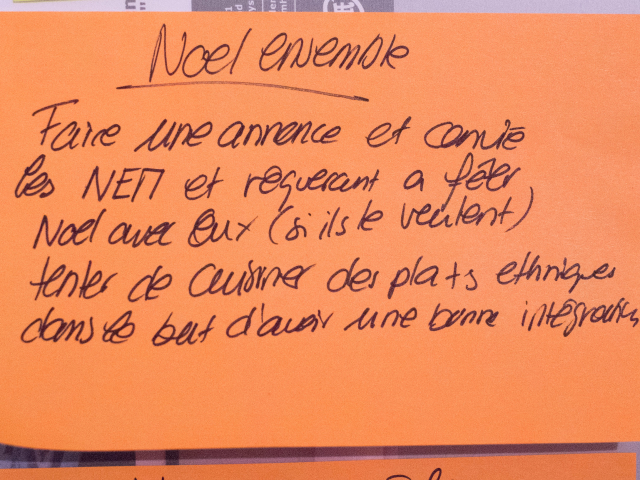 Noel ensemble
Faire une annonce et convie
les NEM et requerant a fêter
Noel avec eux (si ils le veulent)
tenter de cuisiner des plats ethniques
dans le but d'avoir une bonne intégration